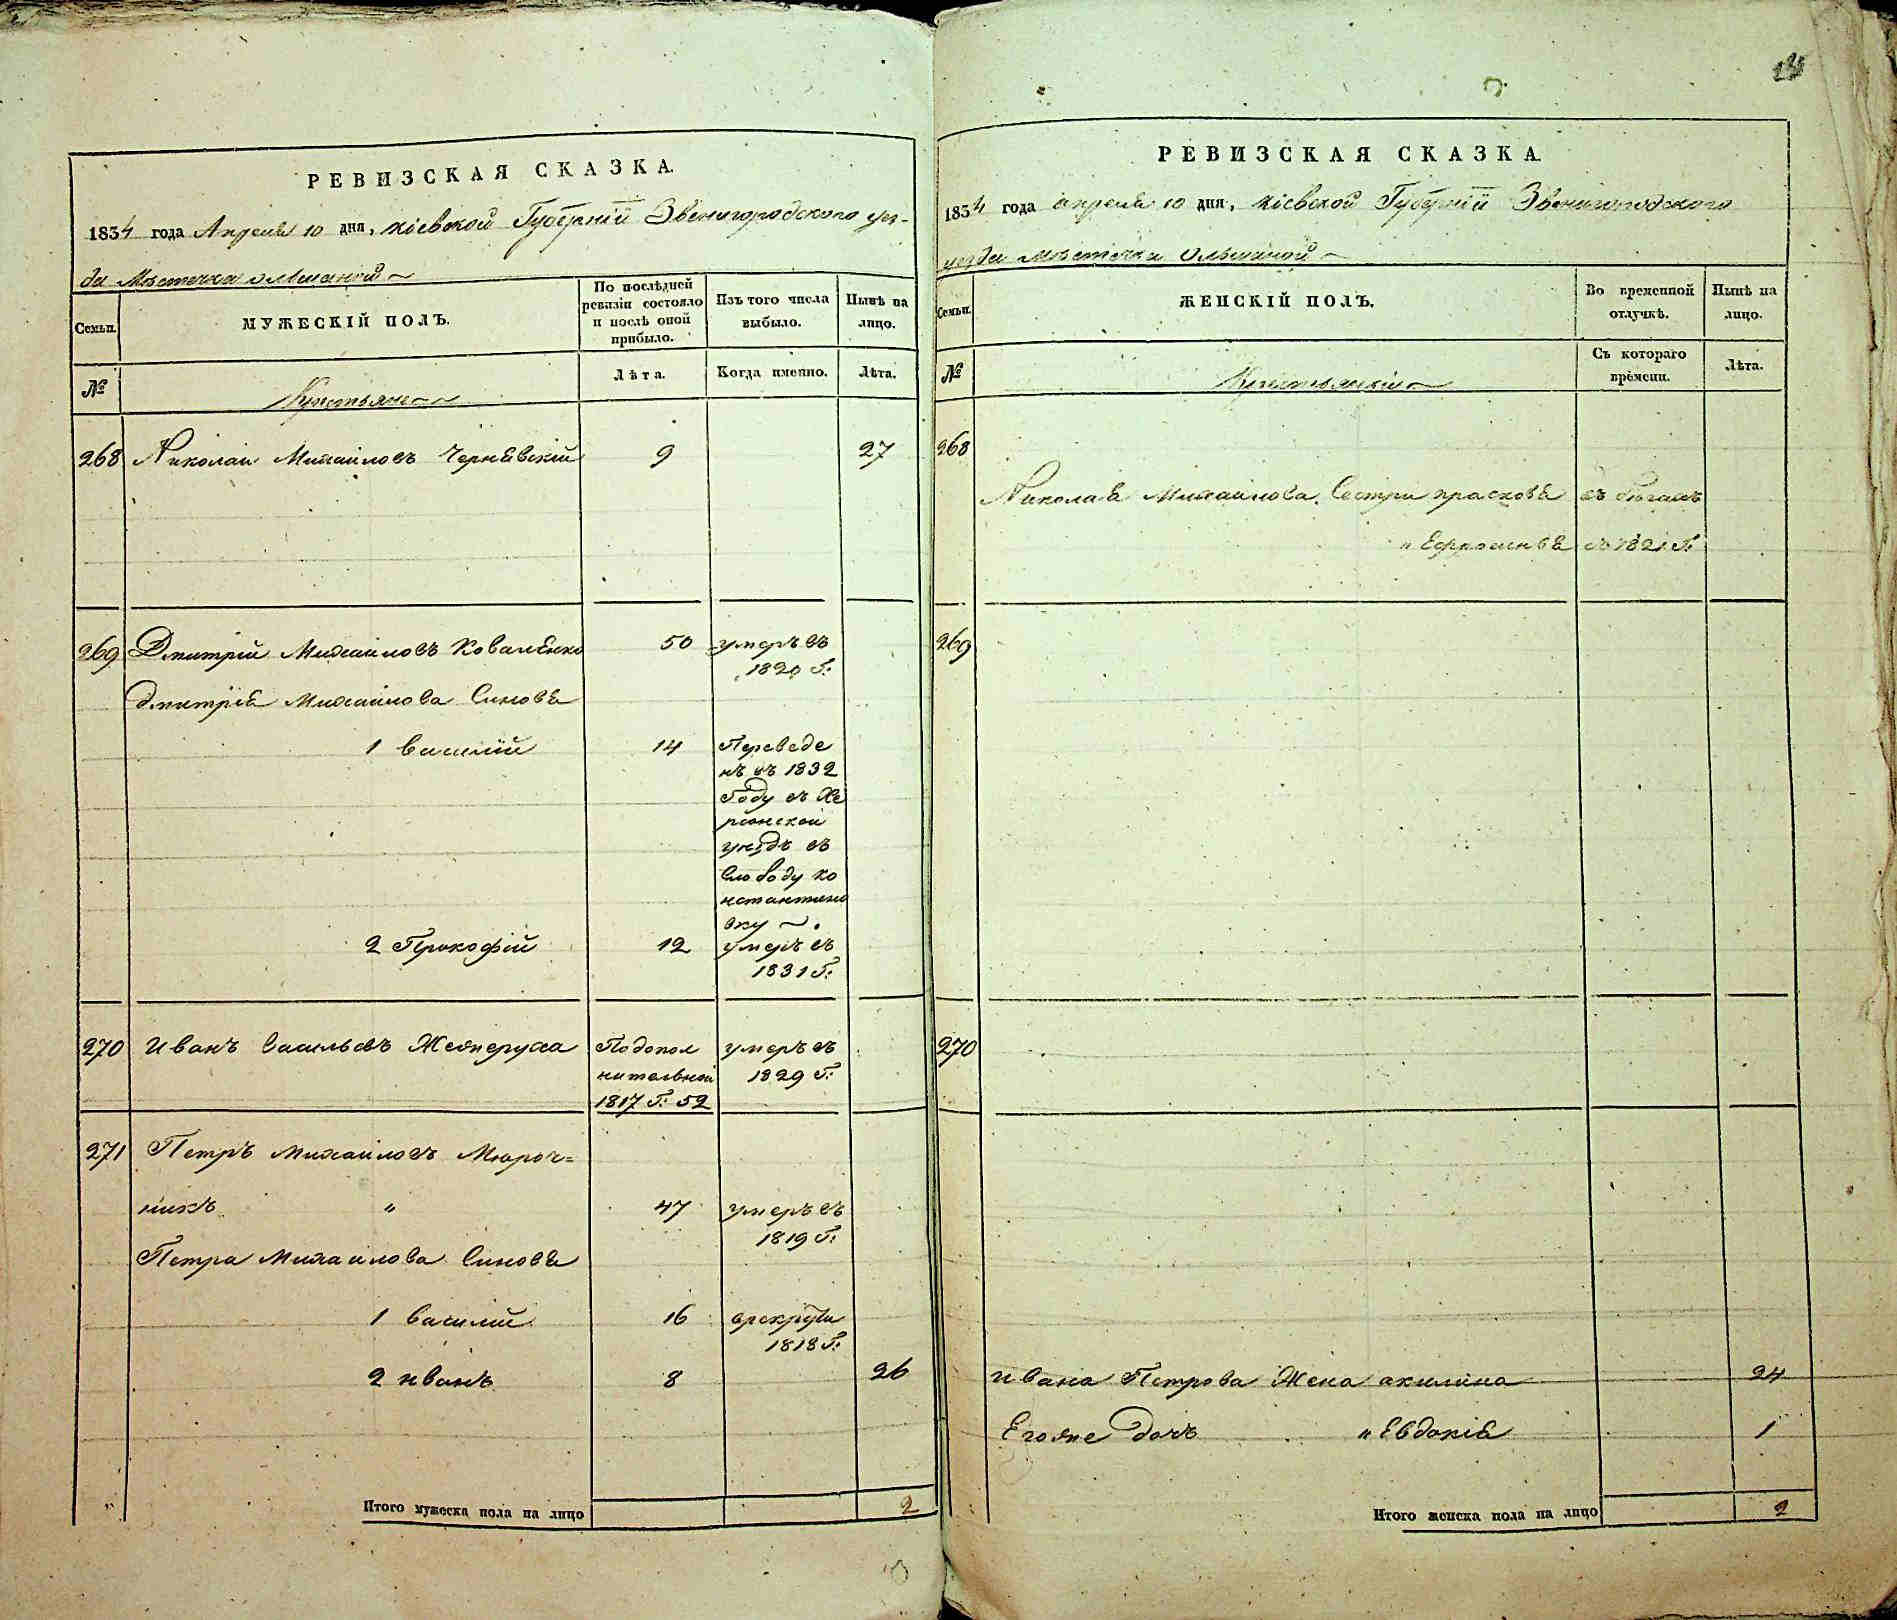 РЕВИЗСКАЯ СКАЗКА.
1834 года Апреля 10 дня, Кіевской Губерніи Звенигородского уез-
да Мѣстечка Ольшаной
Семьи.
МУЖЕСКІЙ ПОЛЪ.
По послѣдней ревизіи состояло и послѣ оной прибыло.
Изъ того числа выбыло.
Нынѣ на лицо.
№
Крестьяне
Лѣта.
Когда именно.
Лѣта.
268 Николай Михайловъ Чернѣвскій 9 27
269 Дмитрій Михайловъ Коваленко 50 умеръ въ
1820 Г:
Дмитрія Михайлова Синовя
1 Василій 14 Переведе
нъ въ 1832
Году въ Хе
рсонской
уездъ въ
Слободу ко
нстантино
вку
2 Прокофій 12 умеръ въ
1831 Г:
270 Иванъ Васильевъ Подопол умеръ въ
нительной 1829 Г:
1817 Г: 52
271 Петръ Михайловъ Мироч=
никъ " 47 умеръ въ
1819 Г:
Петра Михайлова Синовя
1 Василій 16 врекруты
1818 Г:
2 Иванъ 8 26
Итого мужеска пола на лицо 2
РЕВИЗСКАЯ СКАЗКА.
1834 года апреля 10 дня, Кіевской Губерніи Звенигородского
уезда мѣстечка Ольшаной
Семьи.
ЖЕНСКІЙ ПОЛЪ.
Во временной отлучкѣ.
Нынѣ на лицо.
№
Съ котораго времени.
Лѣта.
268
Николая Михайлова Сестри прасковя въ бѣгахъ
" Ефросинья съ 1821 Г:
269
270
Ивана Петрова Жена акилина 24
Егояже Дочь " Евдокія 1
Итого женска пола на лицо 2